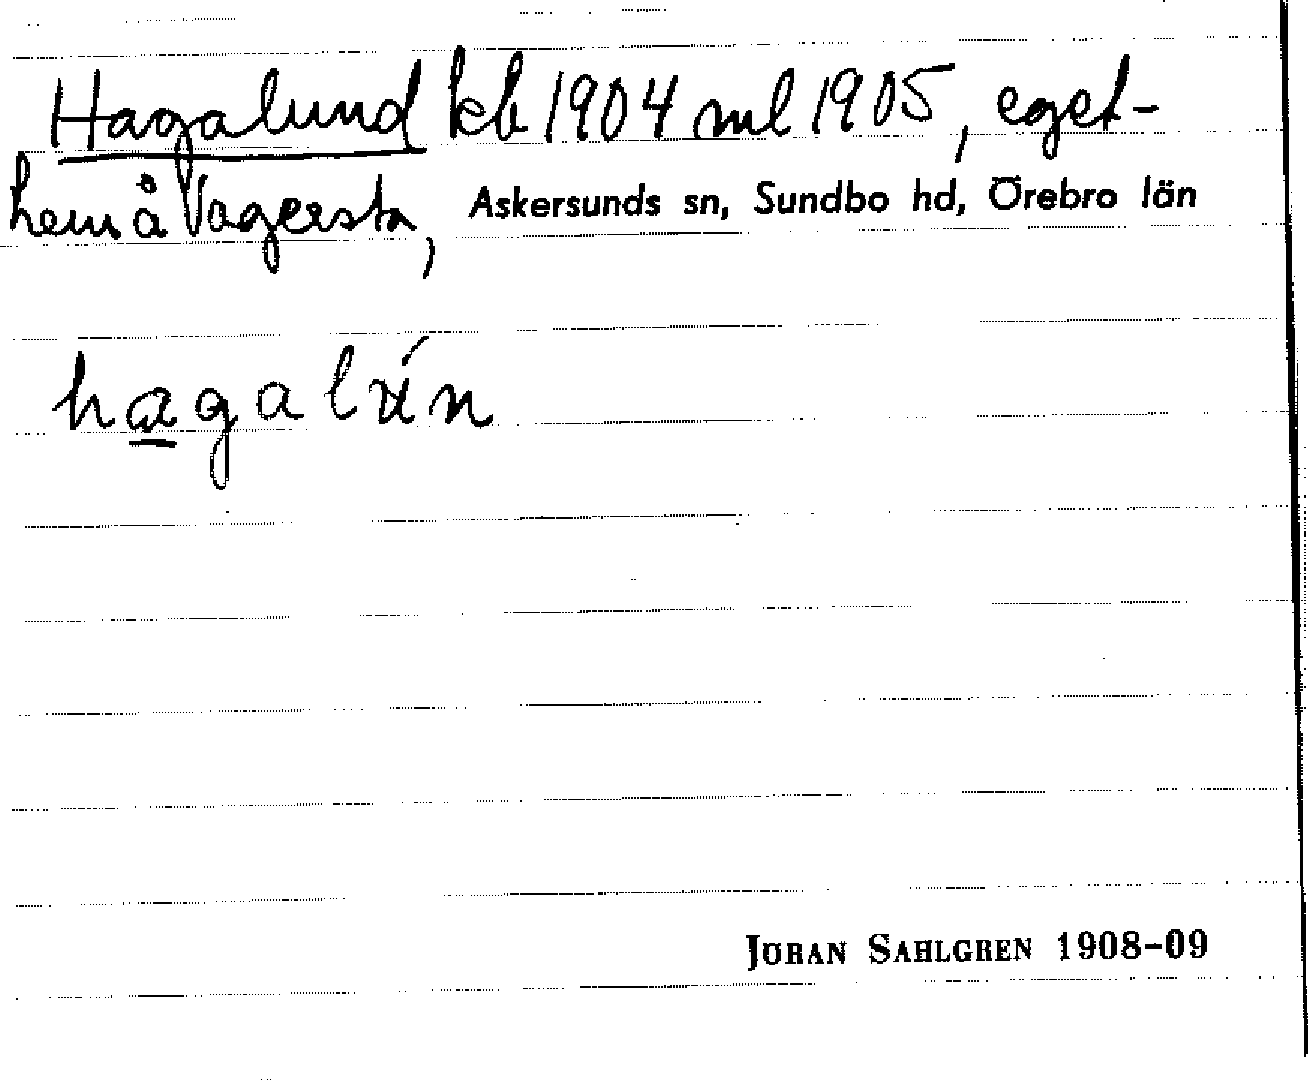 Hagalund kb 1904 ml 1905, eget-
hem å Vagersta, Askersunds sn, Sundbo hd, Örebro län
hagalún
JÖRAN SAHLGREN 1908-09